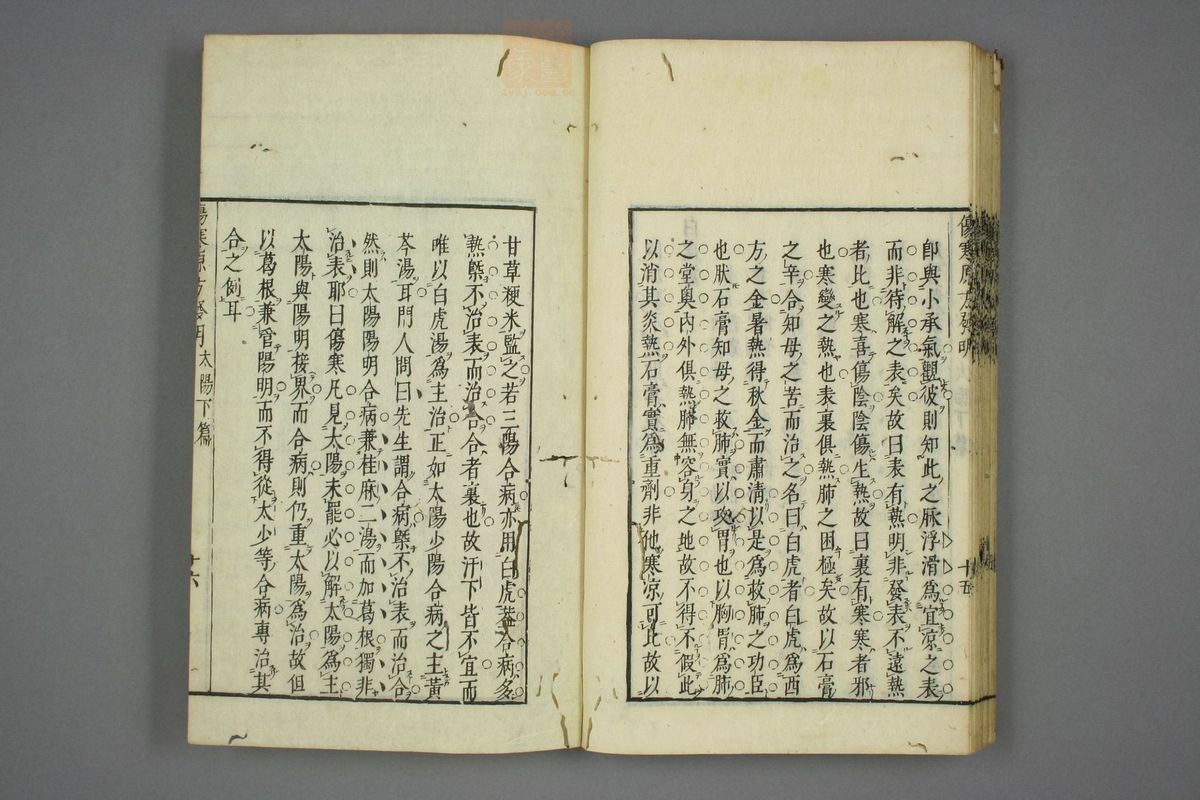 即與小承氣觀彼則知此之脉浮滑爲宜凉之表
而非待解之表矣故曰表有熱明非發表不遠熱
者比也寒喜傷陰陰傷生熱故曰裏有寒寒者邪
也寒變之熱也表裏俱熱肺之困極矣故以石膏
之辛合知母之苦而治之名曰白虎者白虎爲西
方之金暑熱得秋金而肅清以是爲救肺之功臣
也狀石膏知母之救肺實以攻胃也以胸胃爲肺
之堂奧内外俱熱肺無容身之地故不得不假此
以消其炎熱石膏實爲重劑非他寒凉可比故以
傷寒原方發明
十五
甘草粳米監之若三陽合病亦用白虎葢合病多
熱槩不治表而治合合者裏也故汗下皆不宜而
唯以白虎湯爲主治正如太陽少陽合病之主黃
芩湯耳門人問曰先生謂合病槩不治表而治合
然則太陽陽明合病兼桂麻二湯而加葛根獨非
治表耶曰傷寒凡見太陽未罷必以解太陽爲主
太陽與陽明接界而合病則仍重太陽爲治故但
以葛根兼管陽明而不得從太少等合病專治其
合之例耳
傷寒原方發明
太陽下篇
十六